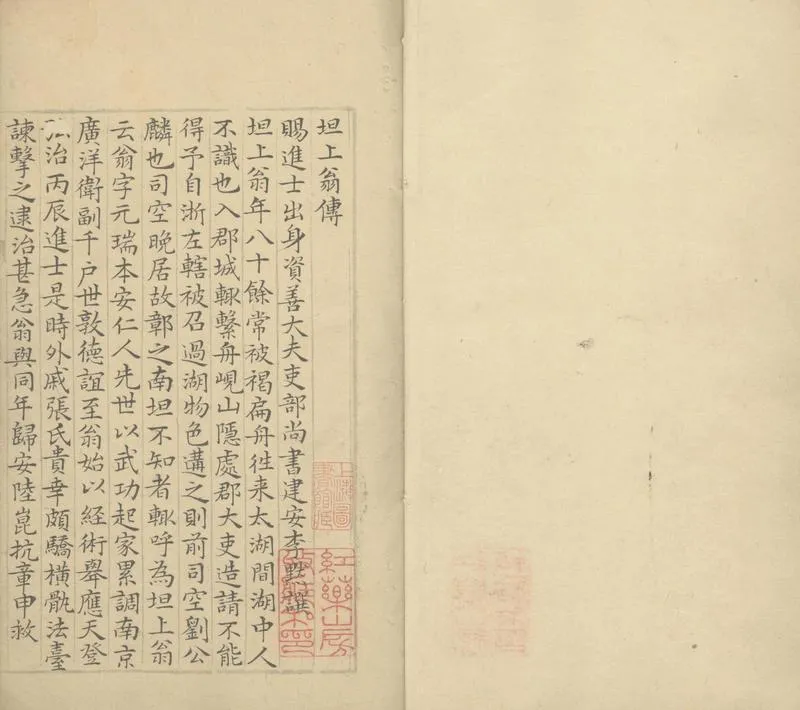 坦上翁傳
賜進士出身資善大夫吏部尚書建安李默撰
坦上翁年八十餘常被褐扁舟徃来太湖間湖中人
不識也入郡城輙繫舟峴山隱處郡大吏造請不能
得予自浙左轄被召過湖物色遘之則前司空劉公
麟也司空晚居故鄣之南坦不知者輙呼為坦上翁
云翁字元瑞本安仁人先世以武功起家累調南京
廣洋衛副千户世敦德誼至翁始以經術舉應天登
治丙辰進士是時外戚張氏貴幸頗驕橫骫法臺
諫擊之逮治甚急翁與同年歸安陸崑抗章申救
上海圖
書館藏
紅藥山房